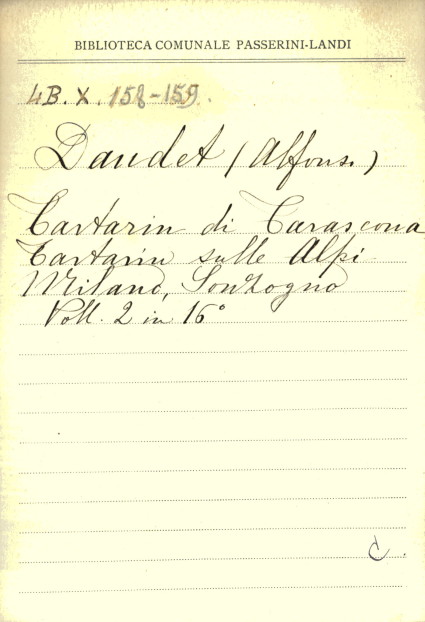 BIBLIOTECA COMUNALE PASSERINI-LANDI
4B. X. 158-159.
Daudet (Alfons.)
Tartarin di Tarascona
Tartarin sulle Alpi
Milano, Sonzogno
Voll. 2 in 16°
C.